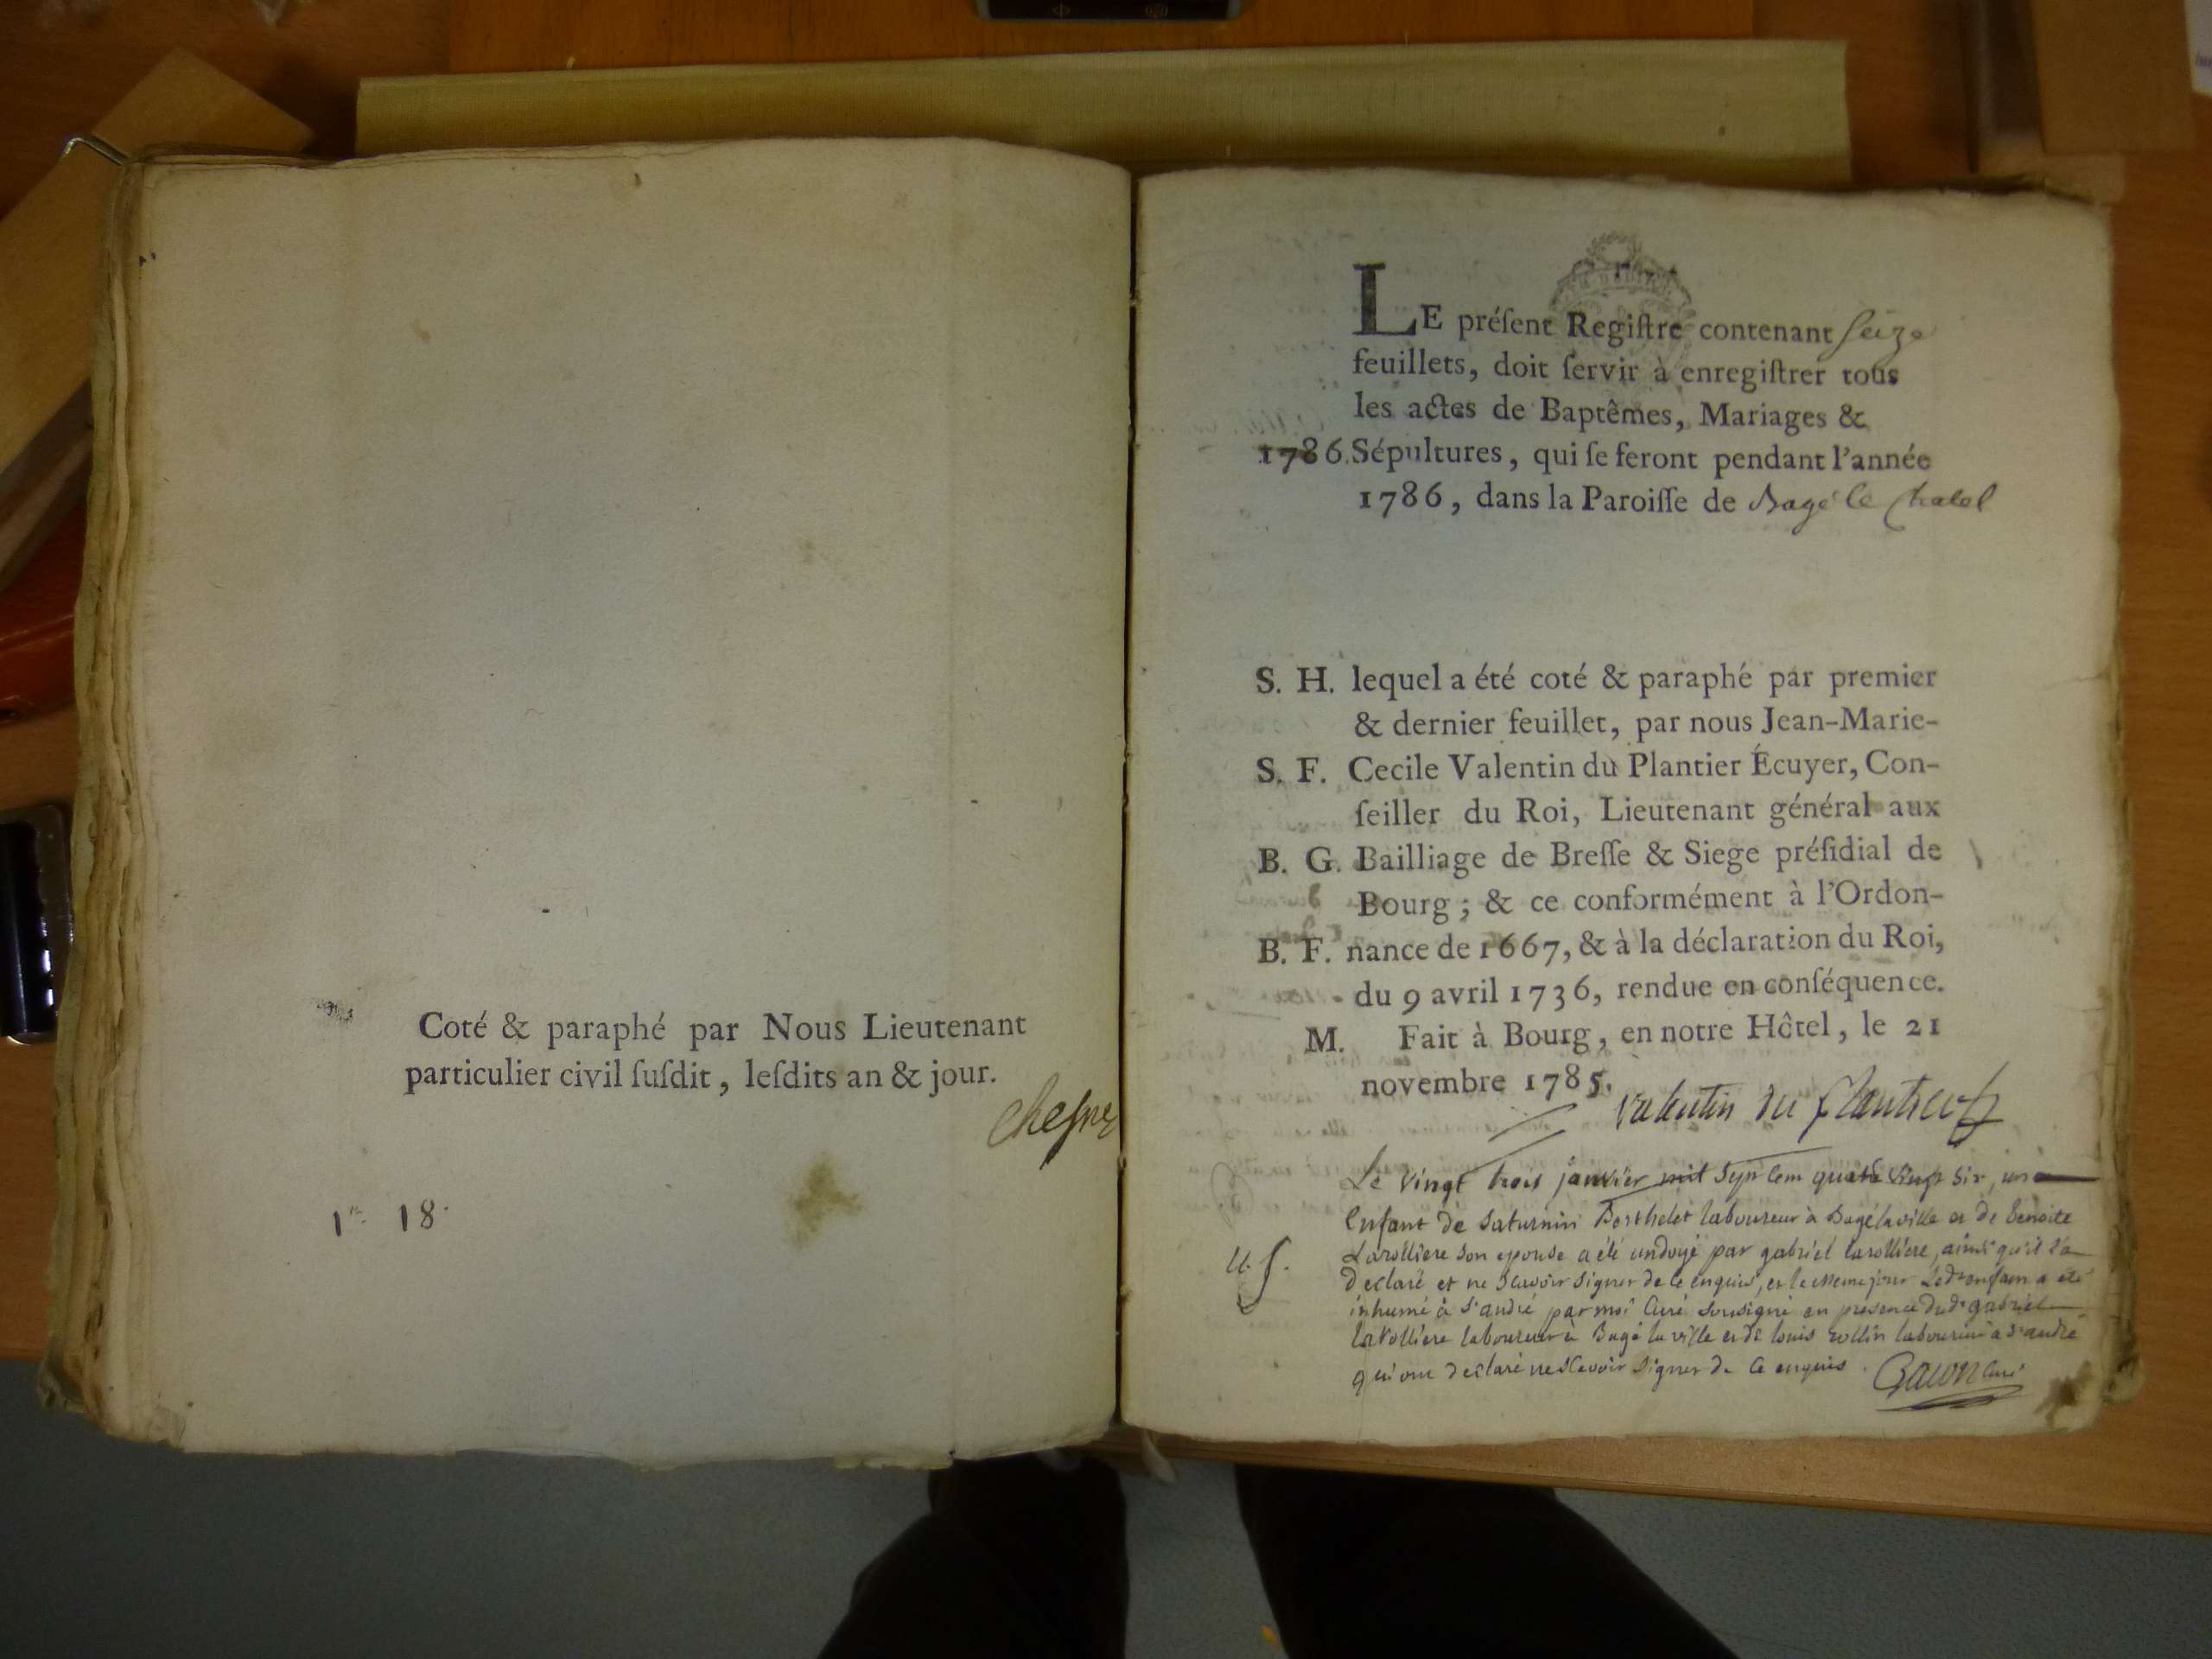 Coté & paraphé par Nous Lieutenant
particulier civil ſuſdit, leſdits an & jour.
1re 18.
LE préſent Regiſtre contenant Seize
feuillets, doit ſervir à enregiſtrer tous
les actes de Baptêmes, Mariages &
1786. Sépultures, qui ſe feront pendant l'année
1786, dans la Paroiſſe de Bagé le Chatel
S. H. lequel a été coté & paraphé par premier
& dernier feuillet, par nous Jean-Marie-
S. F. Cecile Valentin du Plantier Écuyer, Con-
ſeiller du Roi, Lieutenant général aux
B. G. Bailliage de Breſſe & Siege préſidial de
Bourg; & ce conformément à l'Ordon-
B. F. nance de 1667, & à la déclaration du Roi,
du 9 avril 1736, rendue en conſéquence.
M. Fait à Bourg, en notre Hôtel, le 21
novembre 1785.
Valentin du Plantier
Le vingt trois janvier mil sept cem quatre vingt six, un
enfant de Saturnin Berthelet laboureur à Bagé la ville et de benoite
Larolliere son epouse a été undoyé par gabriel larolliere, ainsi qu'il l'a
declaré et ne scavoir signer de ce enquis, et le meme jour led. enfam a été
inhumé à St andré par moi Curé Sousigné en presence dud. gabriel
larolliere laboureur à Bagé la ville et de louis rollin laboureur a St andré
qui ont declaré ne scavoir signer de ce enquis. Curé